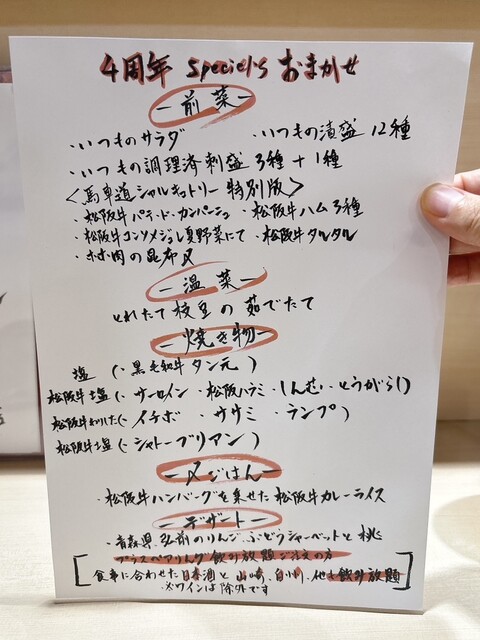 4周年 Specials おまかせ
前菜
・いつものサラダ ・いつもの漬盛 12種
・いつもの調理済刺盛 3種+1種
<馬車道シャルキュトリー 特別版>
・松阪牛パテ・ド・カンパーニュ ・松阪牛ハム3種
・松阪牛コンソメジュレ夏野菜にて ・松阪牛タルタル
・ホホ肉の昆布〆
温菜
とれたて枝豆の茹でたて
焼き物
塩 (・黒毛和牛タン元)
松阪牛塩(・サーロイン ・松阪ハラミ ・しん芯 ・とうがらし)
松阪牛わりした(・イチボ ・ササミ ・ランプ)
松阪牛塩(・シャトーブリアン)
〆ごはん
・松阪牛ハンバーグを乗せた松阪牛カレーライス
デザート
・青森県 弘前のりんご、ぶどうシャーベットと桃
プラスペアリング飲み放題ご注文の方
食事に合わせた日本酒と山崎、白州、他も飲み放題
※ワインは除外です